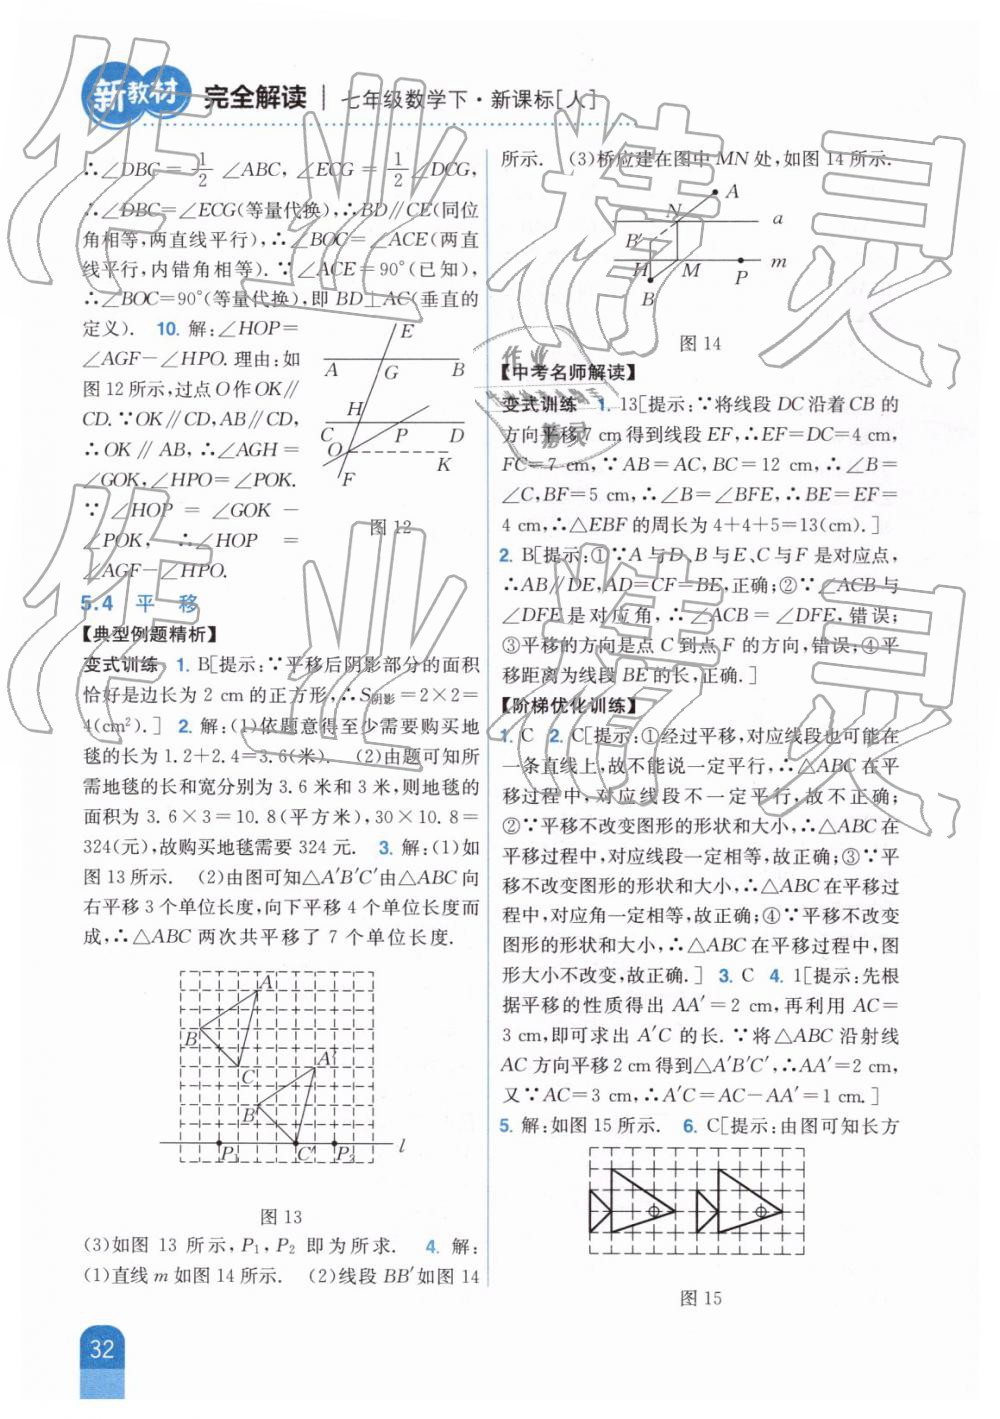 新教材 完全解读 七年级数学下·新课标[人]
∴∠DBC=1/2∠ABC,∠ECG=1/2∠DCG,
∴∠DBC=∠ECG(等量代换),∴BD∥CE(同位
角相等,两直线平行),∴∠BOC=∠ACE(两直
线平行,内错角相等).∵∠ACE=90°(已知),
∴∠BOC=90°(等量代换),即BD⊥AC(垂直的
定义). 10. 解:∠HOP=
∠AGF-∠HPO. 理由:如
图12所示,过点O作OK∥
CD.∵OK∥CD,AB∥CD,
∴OK∥AB,∴∠AGH=
∠GOK,∠HPO=∠POK.
∵∠HOP=∠GOK-
∠POK,∴∠HOP=
∠AGF-∠HPO.
E
A G B
H
C P D
O K
F
图12
5.4 平 移
【典型例题精析】
变式训练 1. B[提示:∵平移后阴影部分的面积
恰好是边长为2 cm的正方形,∴S阴影=2×2=
4(cm²).] 2. 解:(1)依题意得至少需要购买地
毯的长为1.2+2.4=3.6(米). (2)由题可知所
需地毯的长和宽分别为3.6米和3米,则地毯的
面积为3.6×3=10.8(平方米),30×10.8=
324(元),故购买地毯需要324元. 3. 解:(1)如
图13所示. (2)由图可知△A′B′C′由△ABC向
右平移3个单位长度,向下平移4个单位长度而
成,∴△ABC两次共平移了7个单位长度.
A
B
C A′
B′
P₁ C′ P₂ l
图13
(3)如图13所示,P₁,P₂即为所求. 4. 解:
(1)直线m如图14所示. (2)线段BB′如图14
所示. (3)桥应建在图中MN处,如图14所示.
A
N a
B′
H M P m
B
图14
【中考名师解读】
变式训练 1. 13[提示:∵将线段DC沿着CB的
方向平移7 cm得到线段EF,∴EF=DC=4 cm,
FC=7 cm,∵AB=AC,BC=12 cm,∴∠B=
∠C,BF=5 cm,∴∠B=∠BFE,∴BE=EF=
4 cm,∴△EBF的周长为4+4+5=13(cm).]
2. B[提示:①∵A与D、B与E、C与F是对应点,
∴AB∥DE,AD=CF=BE,正确;②∵∠ACB与
∠DFE是对应角,∴∠ACB=∠DFE,错误;
③平移的方向是点C到点F的方向,错误;④平
移距离为线段BE的长,正确.]
【阶梯优化训练】
1. C 2. C[提示:①经过平移,对应线段也可能在
一条直线上,故不能说一定平行,∴△ABC在平
移过程中,对应线段不一定平行,故不正确;
②∵平移不改变图形的形状和大小,∴△ABC在
平移过程中,对应线段一定相等,故正确;③∵平
移不改变图形的形状和大小,∴△ABC在平移过
程中,对应角一定相等,故正确;④∵平移不改变
图形的形状和大小,∴△ABC在平移过程中,图
形大小不改变,故正确.] 3. C 4. 1[提示:先根
据平移的性质得出AA′=2 cm,再利用AC=
3 cm,即可求出A′C的长.∵将△ABC沿射线
AC方向平移2 cm得到△A′B′C′,∴AA′=2 cm,
又∵AC=3 cm,∴A′C=AC-AA′=1 cm.]
5. 解:如图15所示. 6. C[提示:由图可知长方
图15
32
作业精灵
作业精灵